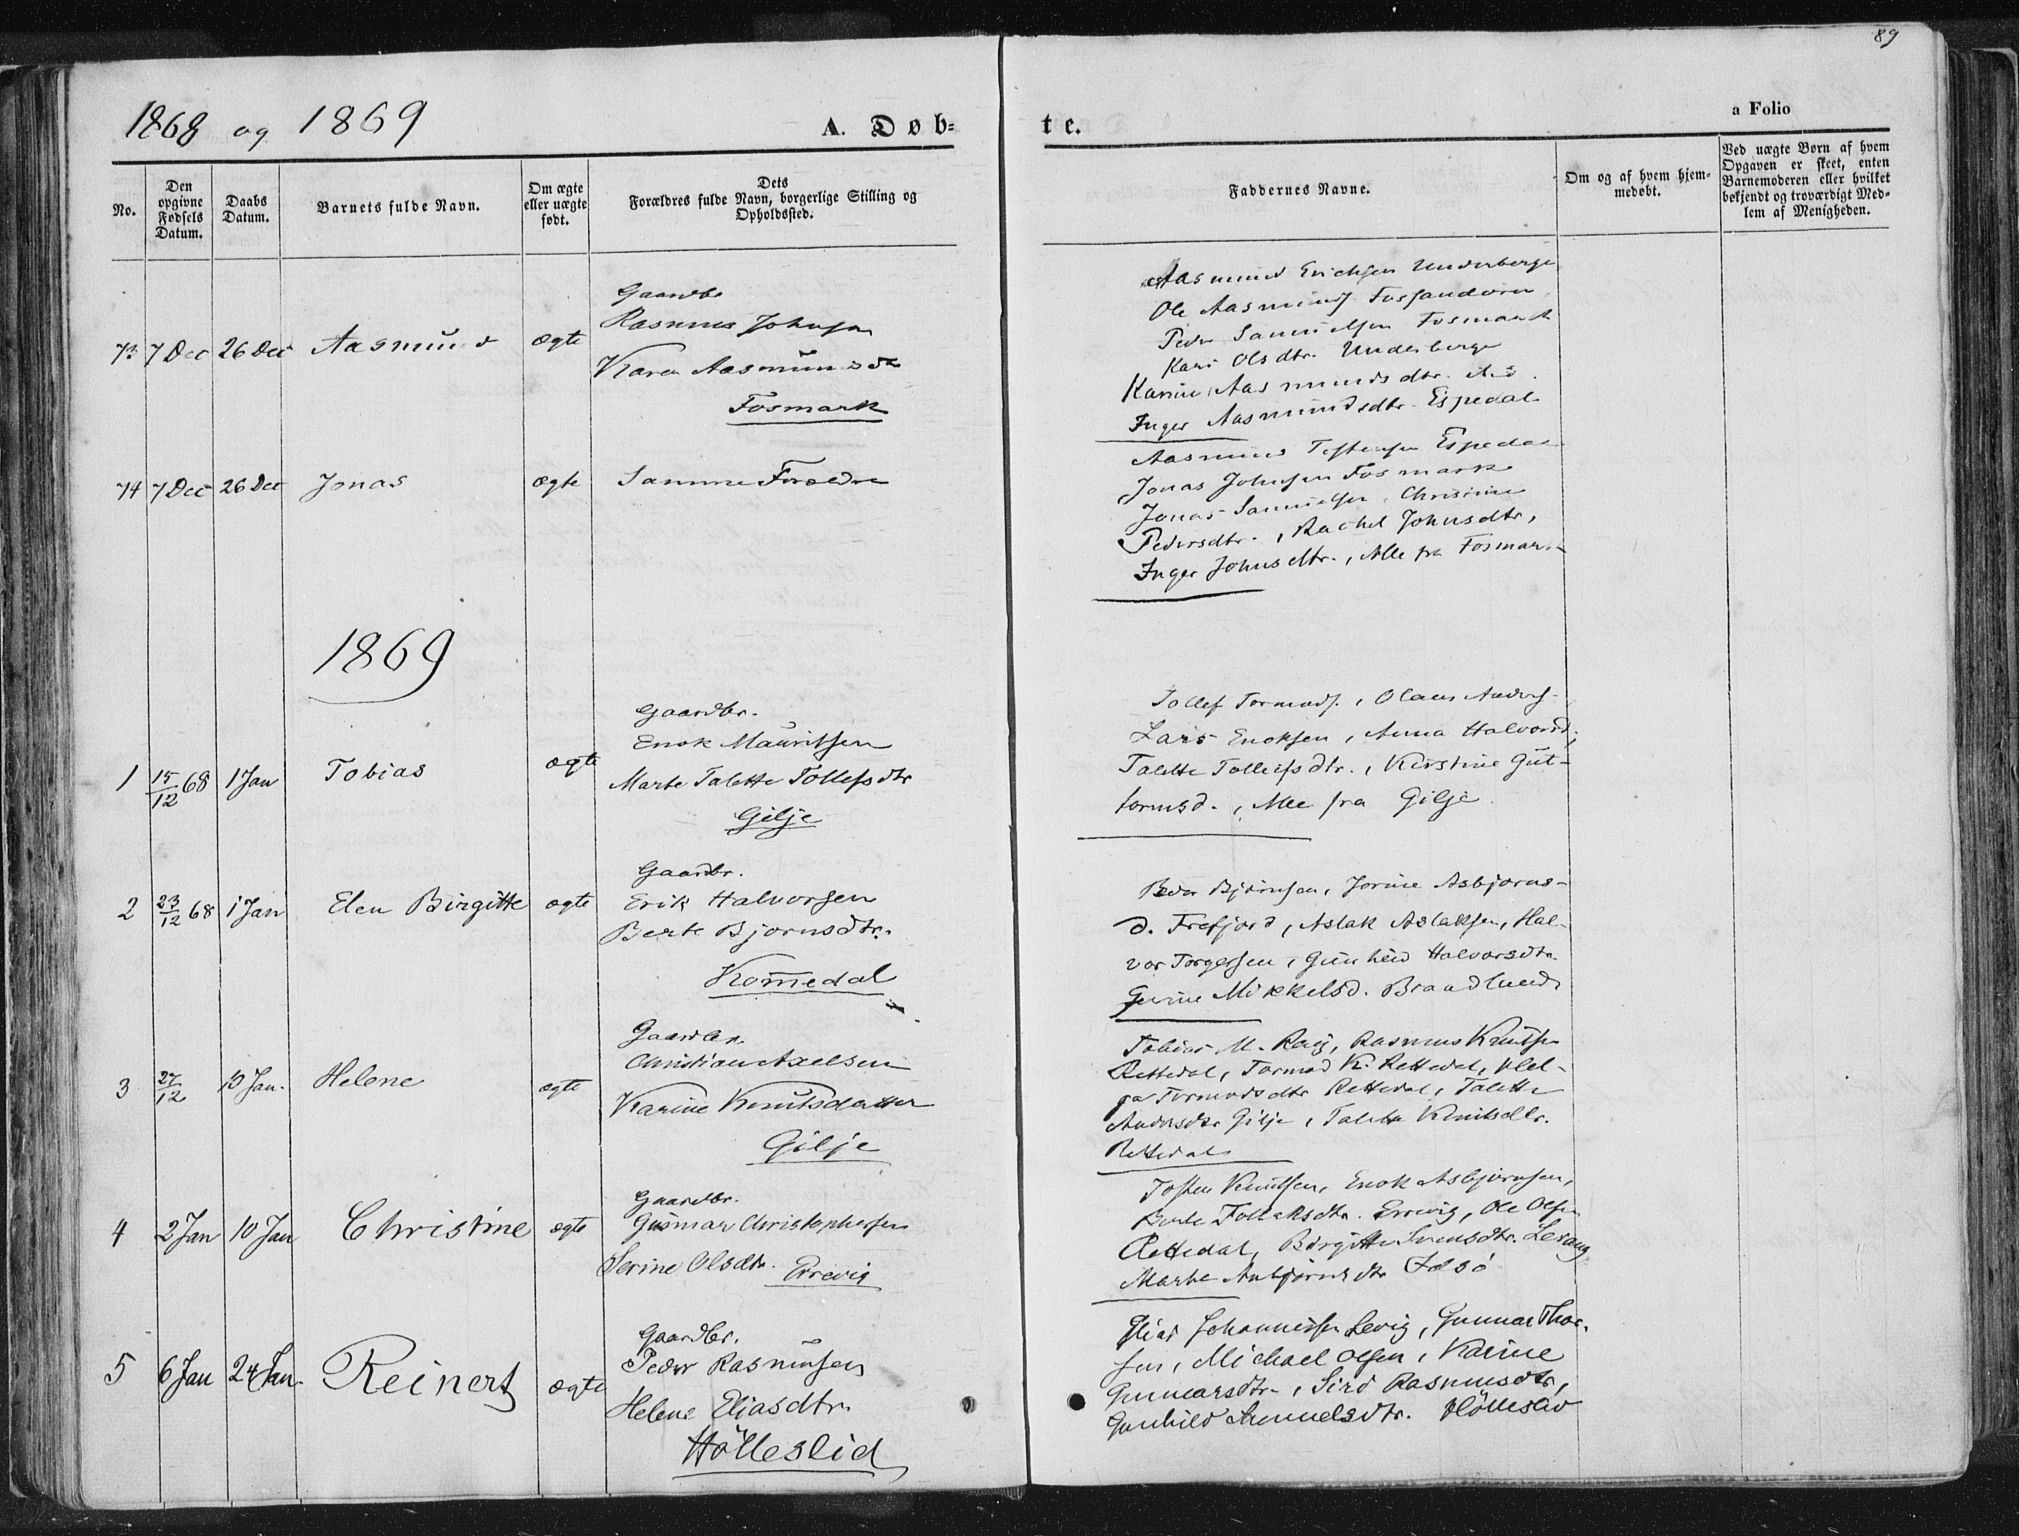 89
1868 og 1869
A. Døb=
te.
a Folio
No.
Den opgivne Fødsels Datum.
Daabs Datum.
Barnets fulde Navn.
Om ægte eller uægte født.
Dets Forældres fulde Navn, borgerlige Stilling og Opholdssted.
Faddernes Navne.
Om og af hvem hjem-medøbt.
Ved uægte Børn af hvem
Opgaven er skeet, enten
Barnemoderen eller hvilket
bekjendt og troværdigt Med-
lem af Menigheden.
73 7 Dec 26 Dec Aasmund ægte
Gaardbr
Rasmus Johnsen
Karen Aasmundsdtr
Fosmark
Aasmund Erichsen Underberge
Ole Aasmunds. Fossandøen
Peder Samuelsen Fosmark
Kari Olsdtr. Underberge
Karine Aasmundsdtr.
Inger Aasmundsdtr. Espedal
74 7 Dec 26 Dec Jonas ægte Samme Forældre
Aasmund Espedal
Jonas Johnsen Fosmark
Jonas Samuelsen, Christine
Pedersdtr., Rachel Johnsdtr,
Inger Johnsdtr., Alle fra Fosmark
1869
1 15/12 68 1 Jan Tobias ægte
Gaardbr.
Enok Mauritsen
Marte Talette Tollefsdtr
Gilje
Tollef Tormods., Olaus Anders.
Lars Enoksen, Anna Halvorsd.,
Talette Tollefsdtr., Kirstine Gut-
tormsd., Alle fra Gilje
2 23/12 68 1 Jan Elen Birgitte ægte
Gaardbr.
Erik Halvorsen
Berte Bjørnsdtr.
Komedal
Peder Bjørnsen, Jorine Asbjørns-
d. Frefjord, Aslak Aslaksen, Hal-
vor Torgersen, Gunhild Halvorsdtr
Mikkelsd. Braadlund
3 27/12 Jan. Helene ægte
Gaardbr.
Christian Axelsen
Karine Knutsdatter
Gilje
Tobias M. Rasmus Knuts.
Rettedal, Tormod K. Rettedal, Hel-
ga Tormodsdtr Rettedal, Talette
Andersdtr Gilje, Talette Knutsdtr.
Rettedal
4 2 Jan 10 Jan Christine ægte
Gaardbr.
Gusmar Christophersen
Serine Olsdtr. Errevig
Tosten Knutsen, Enok Asbjørnsen,
Berte Errevig, Ole Olsen
Rettedal, Birgitte Svensdtr. Levang
Marte Anbjørnsdtr Idsø
5 6 Jan 24 Jan. Reinert ægte
Gaardbr.
Peder Rasmusen
Helene Eliasdtr.
Hølleslid
Elias Johannessen Levig, Gunnar Thor-
sen, Michael Olsen, Karine
Gunnarsdtr., Sird Rasmusdtr,
Gunhild Samuelsdtr. Hølleslid